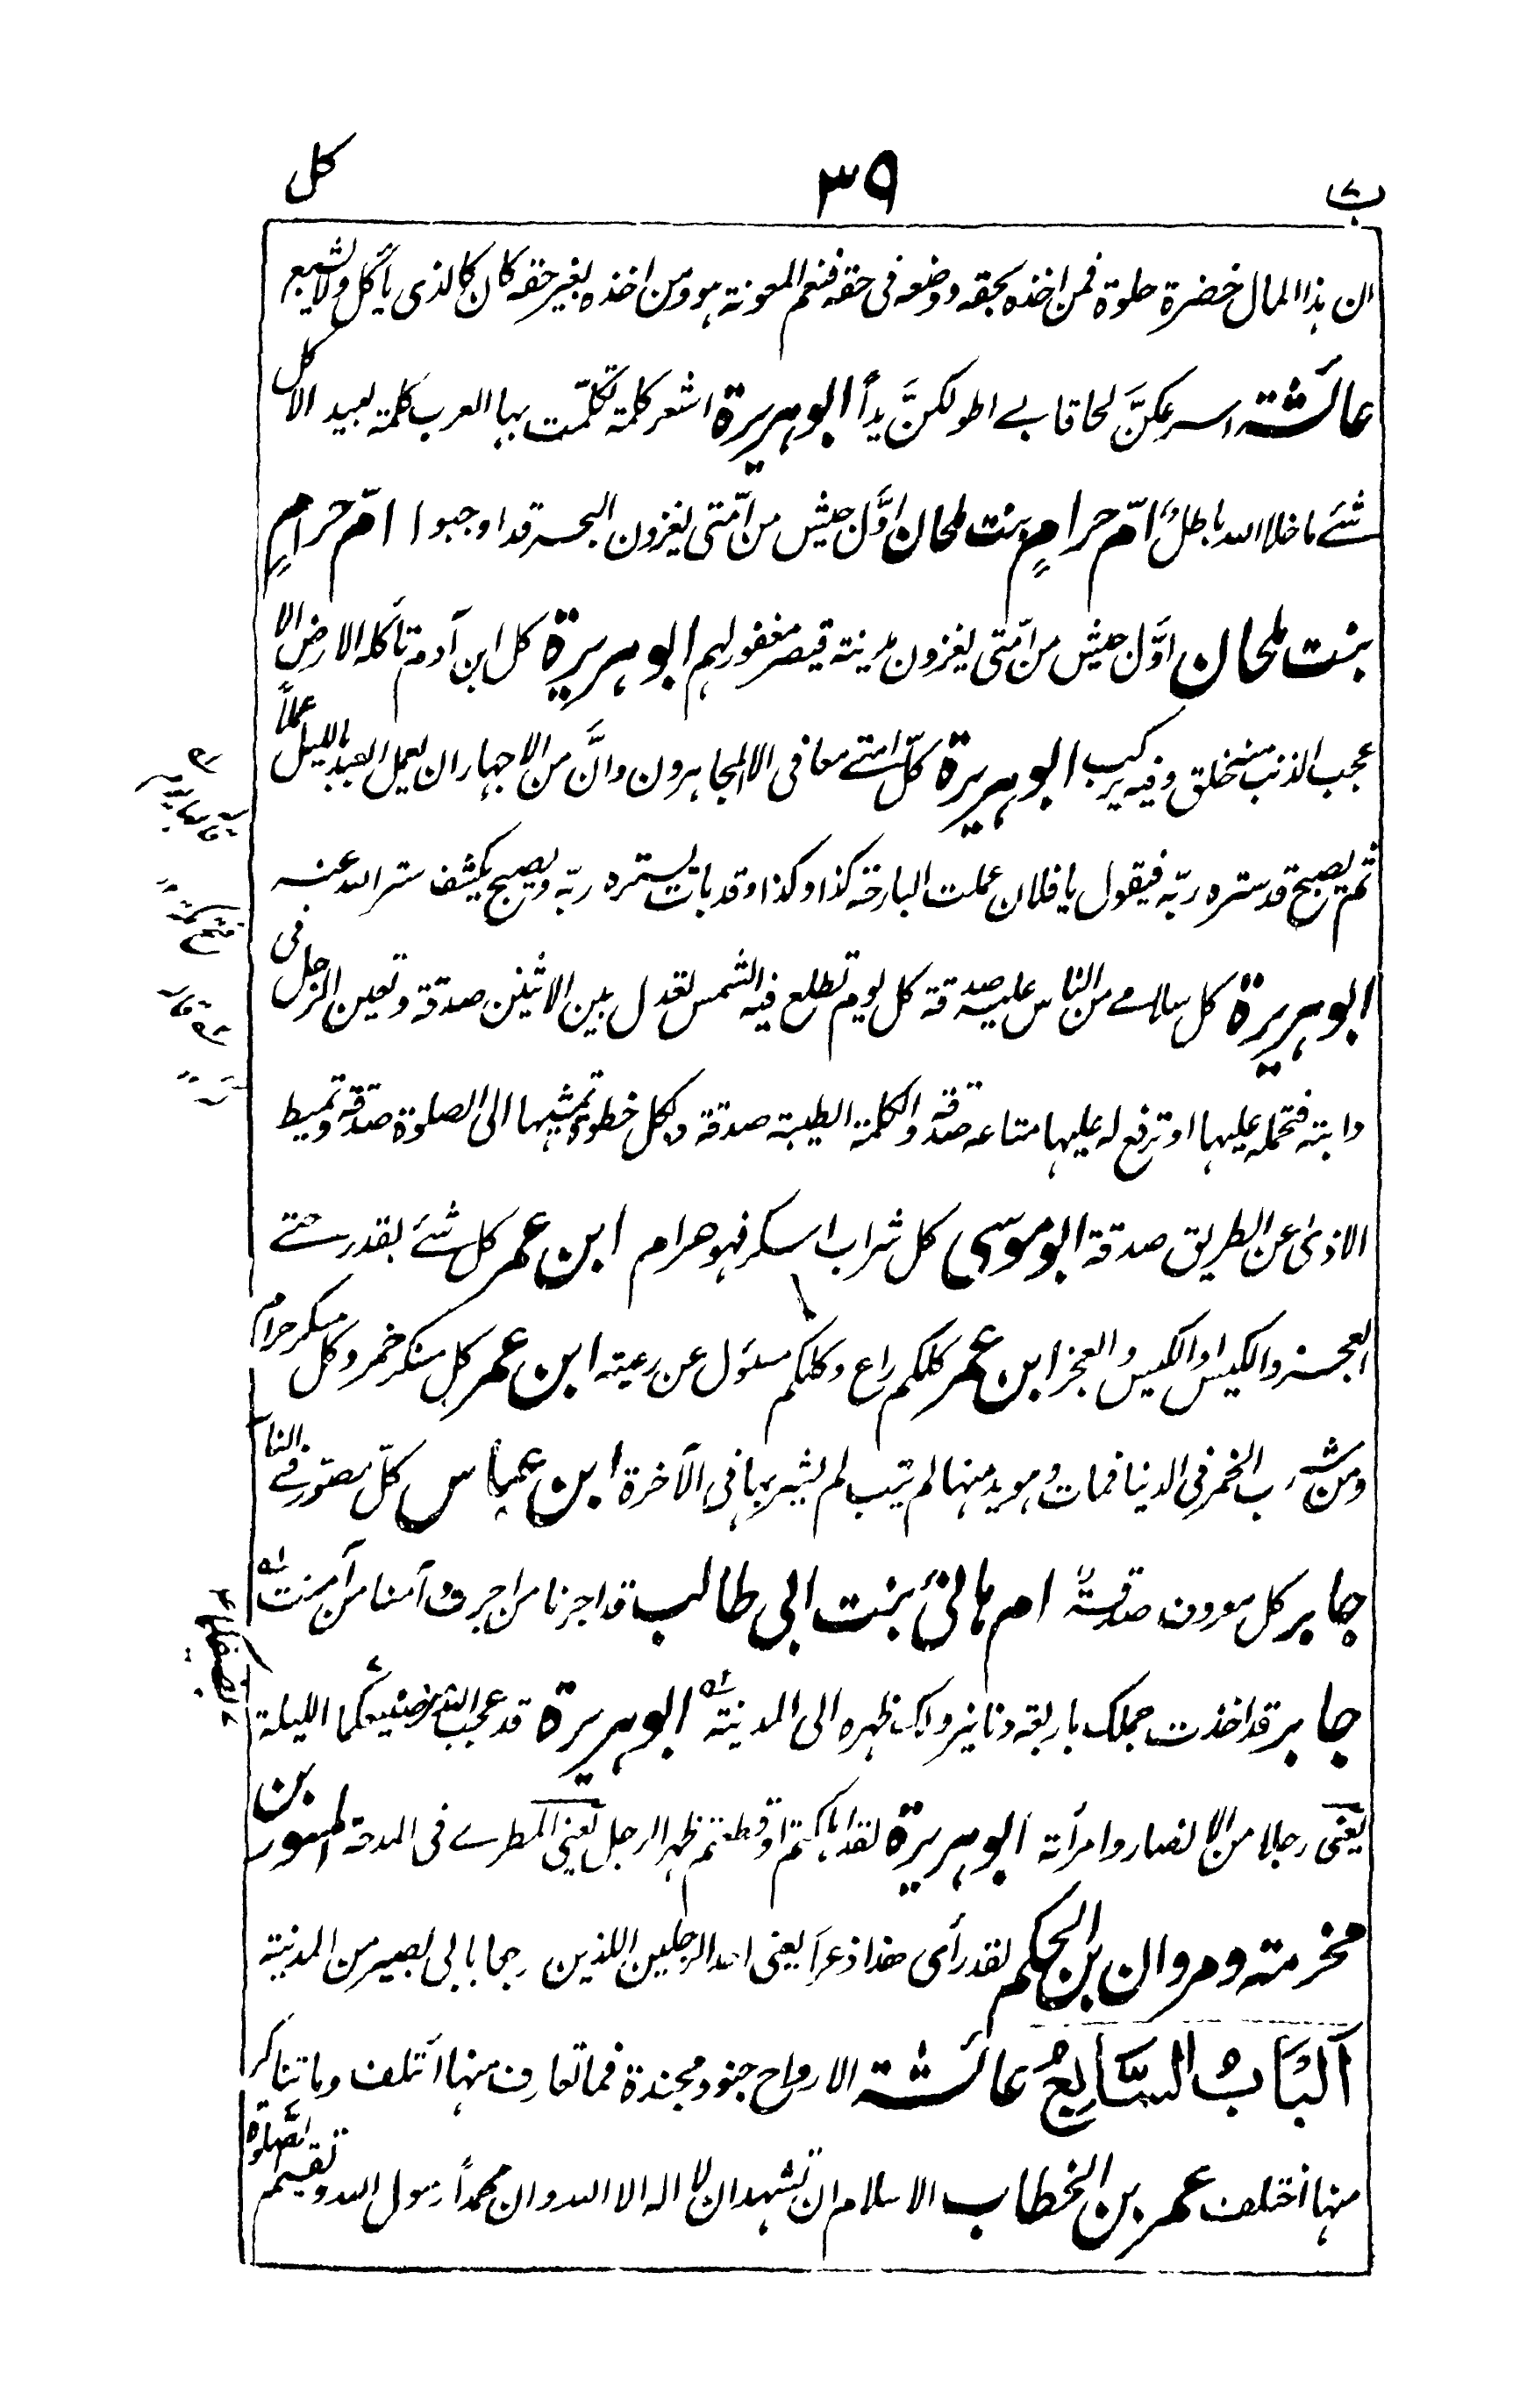 ب
۳۹
کل
ان هذا المال خضرة حلوة فمن اخذه بحقه و وضعه فی حقه فنعم المعونة هو ومن اخذه بغیر حقه کان کالذی یأکل ولا یشبع
عائشة اسرعکنَّ لحاقا بی اطولکنَّ یداً ابو هریرة اشعر کلمة تکلّمت بها العرب کلمة لبید الا کل
شئ ما خلا الله باطل امّ حرامٍ بنت ملحان اوَّل جیش من امّتی یغزون البحر قد اوجبوا امّ حرامٍ
بنت ملحان اوَّل جیش من امّتی یغزون مدینة قیصر مغفور لهم ابو هریرة کل ابن آدم تأکله الارض الا
عجب الذنب منه خلق وفیه یرکب ابو هریرة کلّ امتی معافی الا المجاهرون وانَّ من الاجهار ان یعمل العبد باللیل عملاً
ثم یصبح قد ستره ربّه فیقول یا فلان عملت البارحة کذا وکذا وقد بات یستره ربّه ویصبح یکشف ستر الله عنه
ابو هریرة کل سلامی من الناس علیه صدقة کل یوم تطلع فیه الشمس تعدل بین الاثنین صدقة وتعین الرجل فی
دابته فتحمله علیها او ترفع له علیها متاعه صدقة والکلمة الطیبة صدقة وکل خطوة تمشیها الی الصلوة صدقة وتمیط
الاذی عن الطریق صدقة ابو موسی کل شراب اسکر فهو حرام ابن عمر کل شئ بقدر حتی
العجز والکیس او الکیس والعجز ابن عمر کلکم راع وکلکم مسئول عن رعیته ابن عمر کل مسکر خمر وکل مسکر حرام
ومن شرب الخمر فی الدنیا فمات وهو یدمنها لم یتب لم یشربها فی الآخرة ابن عباس کلّ مصوّر فی النار
جابر کل معروف صدقةٌ ام هانئ بنت ابی طالب قد اجرنا من اجرت وآمنا من آمنت
جابر قد اخذت جملک باربعة دنانیر ولک ظهره الی المدینة ابو هریرة قد عجب الله من صنیعکما اللیلة
یعنی رجلا من الانصار وامرأته ابو هریرة لقد اهلکتم او قطعتم ظهر الرجل یعنی المطری فی المدحة المسور بن
مخرمة ومروان بن الحکم لقد رأی هذا ذعراً یعنی احد الرجلین اللذین رجعا بابی بصیر من المدینة
اَلْبَابُ السَّابِعُ عائشة الارواح جنود مجندة فما تعارف منها ائتلف وما تناکر
منها اختلف عمر بن الخطاب الاسلام ان تشهد ان لا اله الا الله وان محمداً رسول الله وتقیم الصَّلوة